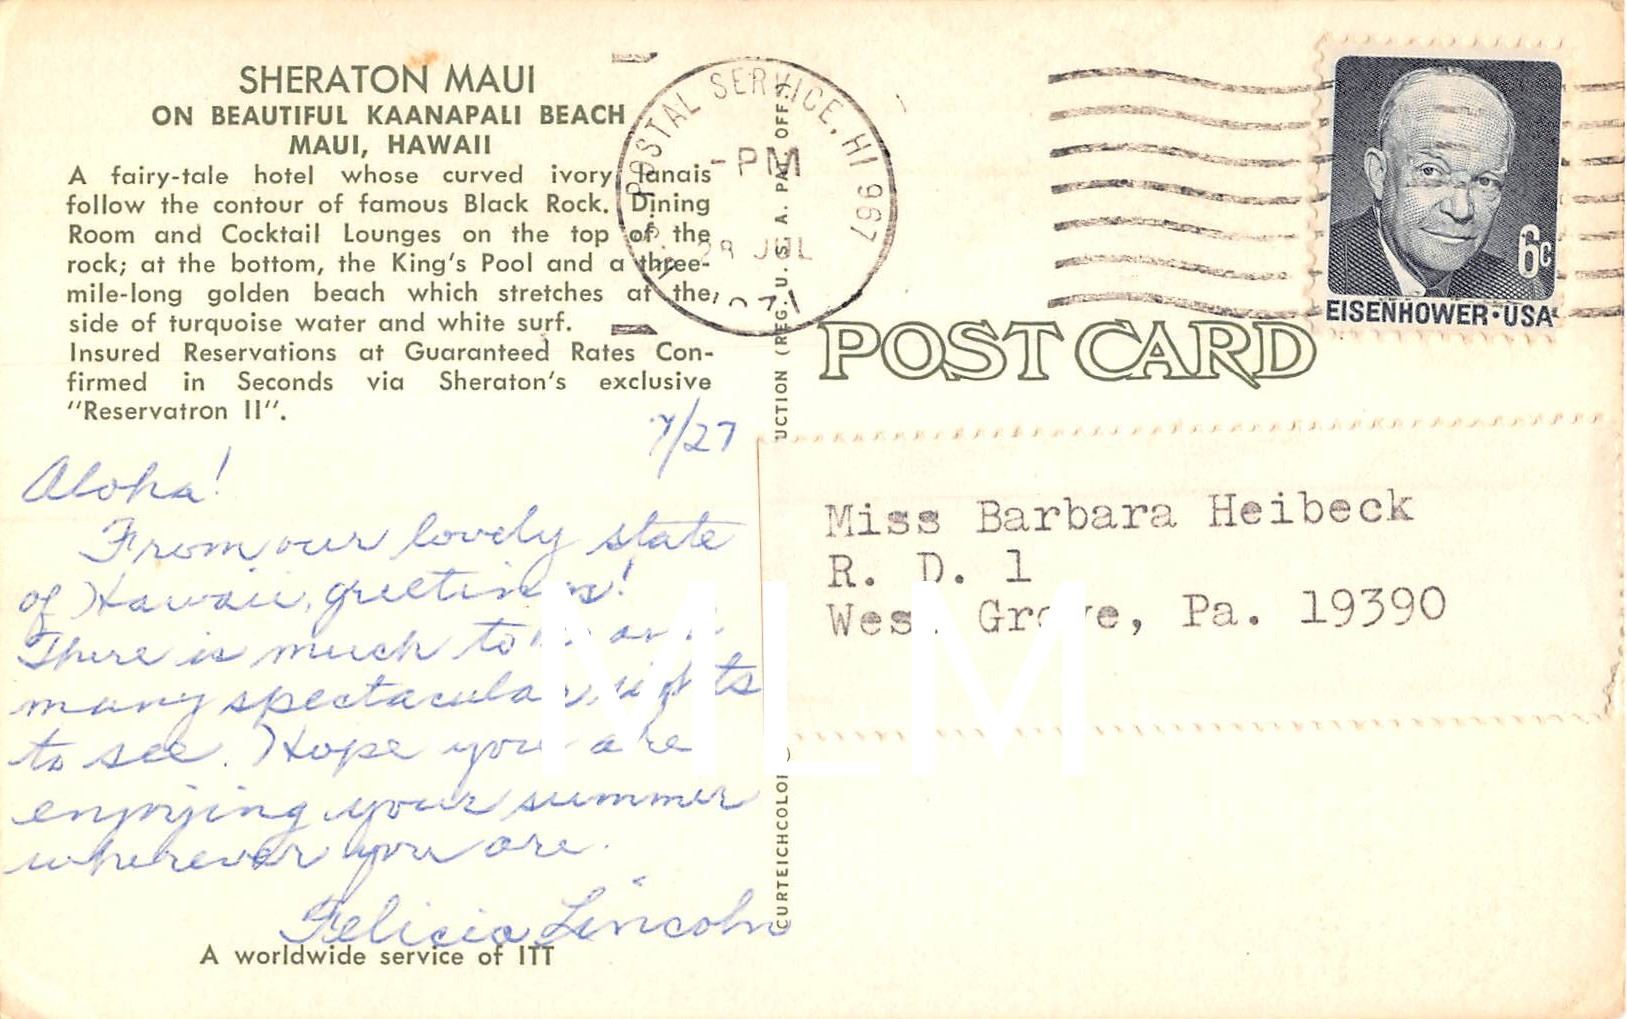 SHERATON MAUI
ON BEAUTIFUL KAANAPALI BEACH
MAUI, HAWAII
A fairy-tale hotel whose curved ivory lanais
follow the contour of famous Black Rock. Dining
Room and Cocktail Lounges on the top of the
rock; at the bottom, the King's Pool and a three-
mile-long golden beach which stretches at the
side of turquoise water and white surf.
Insured Reservations at Guaranteed Rates Con-
firmed in Seconds via Sheraton's exclusive
"Reservatron II".
7/27
Aloha!
From our lovely state
of Hawaii, greetings!
There is much to
many spectacular sights
to see. Hope you are
enjoying your summer
wherever you are.
Felicia Lincoln
A worldwide service of ITT
POSTAL SERVICE, HI 967
-PM
28 JUL
1971
CURTEICHCOLOR
UCTION (REG. U. S. A. PAT. OFF.)
6c
EISENHOWER·USA
POST CARD
Miss Barbara Heibeck
R. D. 1
West Grove, Pa. 19390
MLM